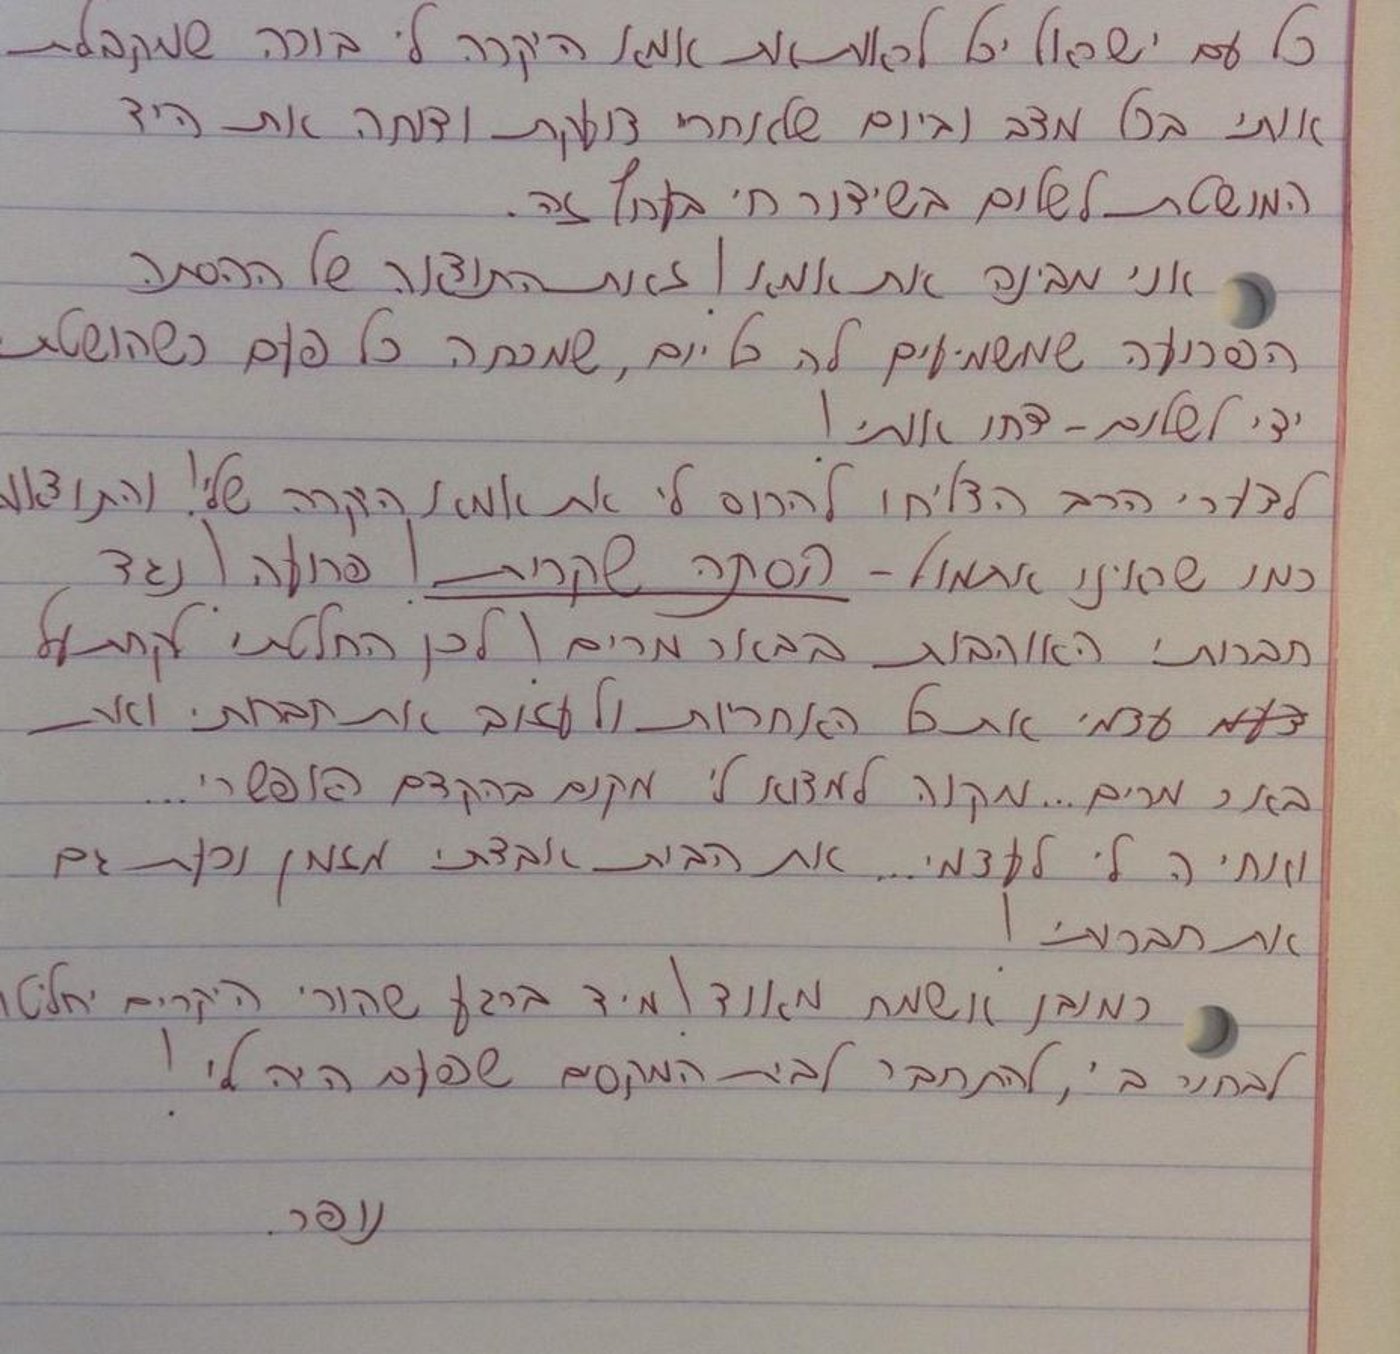 כל עם ישראל יכל לראות את אמא היקרה לי בוכה שמקבלת
אותי בכל מצב וביום שלאחרי צועקת ודוחה את היד
המושטת לשלום בשידור חי בערוץ זה.
אני מבינה את אמא! זאת התוצאה של ההסתה
הפרועה שמשמיעים לה כל יום, שמכתה כל פעם כשהושטתי
ידי לשלום - דחו אותי!
לצערי הרב הצליחו להרוס לי את אמא היקרה שלי! והתוצאות
כמו שראינו אתמול - הסתה שקרית! פרועה! נגד
חברותי האוהבות בבאר מרים! לכן החלטתי לקחת על
עצמי את כל האחריות ולעזוב את חברותי ואת
באר מרים... מקוה למצוא לי מקום בהקדם האפשרי...
ואחיה לי לעצמי... את הבית אבדתי מזמן וכעת גם
את חברותי!
כמובן אשמח מאוד! מיד ברגע שהורי היקרים יחליטו
לבחור בי, להתחבר לבית המקסים שפעם היה לי!
נופר.